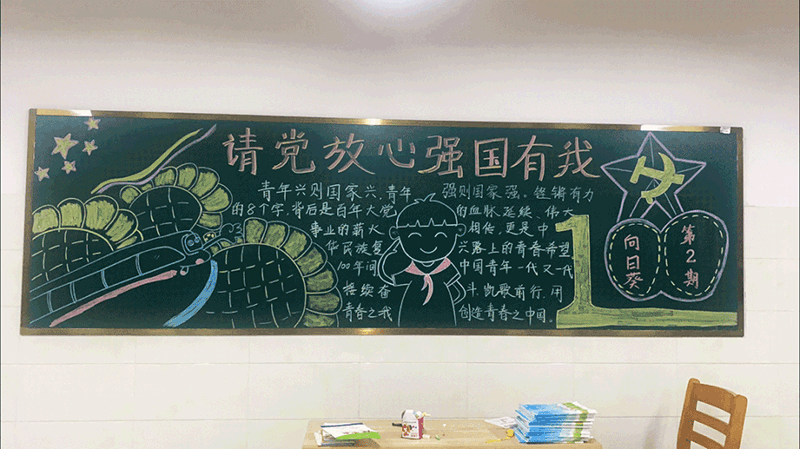 请党放心强国有我
青年兴则国家兴,青年强则国家强。铿锵有力
的8个字,背后是百年大党的血脉延续、伟大
事业的薪火相传,更是中
华民族复兴路上的青春希望
100年间中国青年一代又一代
接续奋斗,凯歌前行,用
青春之我创造青春之中国。
1
向日葵
第2期